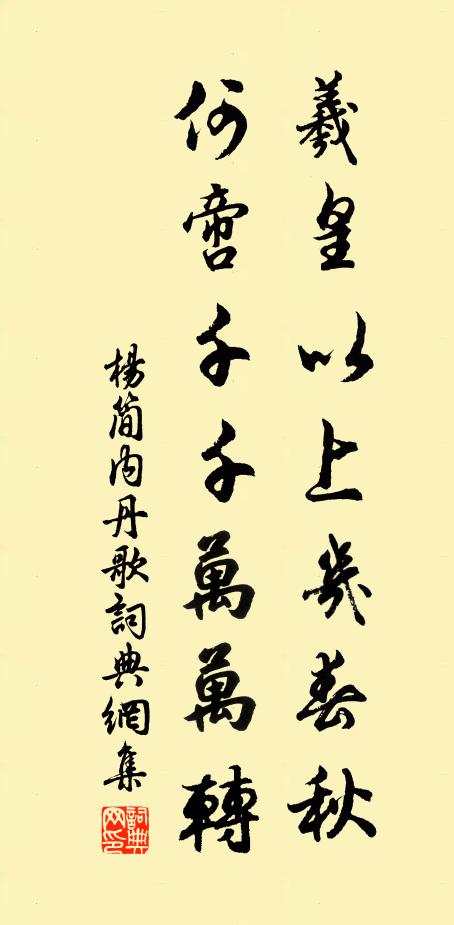 羲皇以上幾春秋
何啻千千萬萬轉
楊簡內丹歌詞典網集
詞典網印